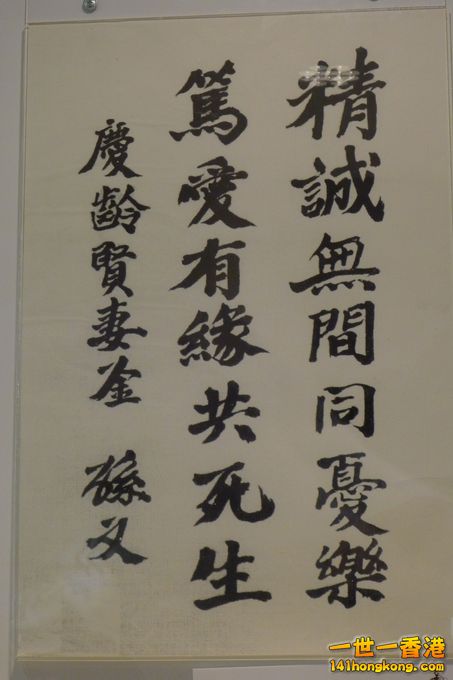 精誠無間同憂樂
篤愛有緣共死生
慶齡賢妻鉴 孫文
一世一香港
141hongkong.com